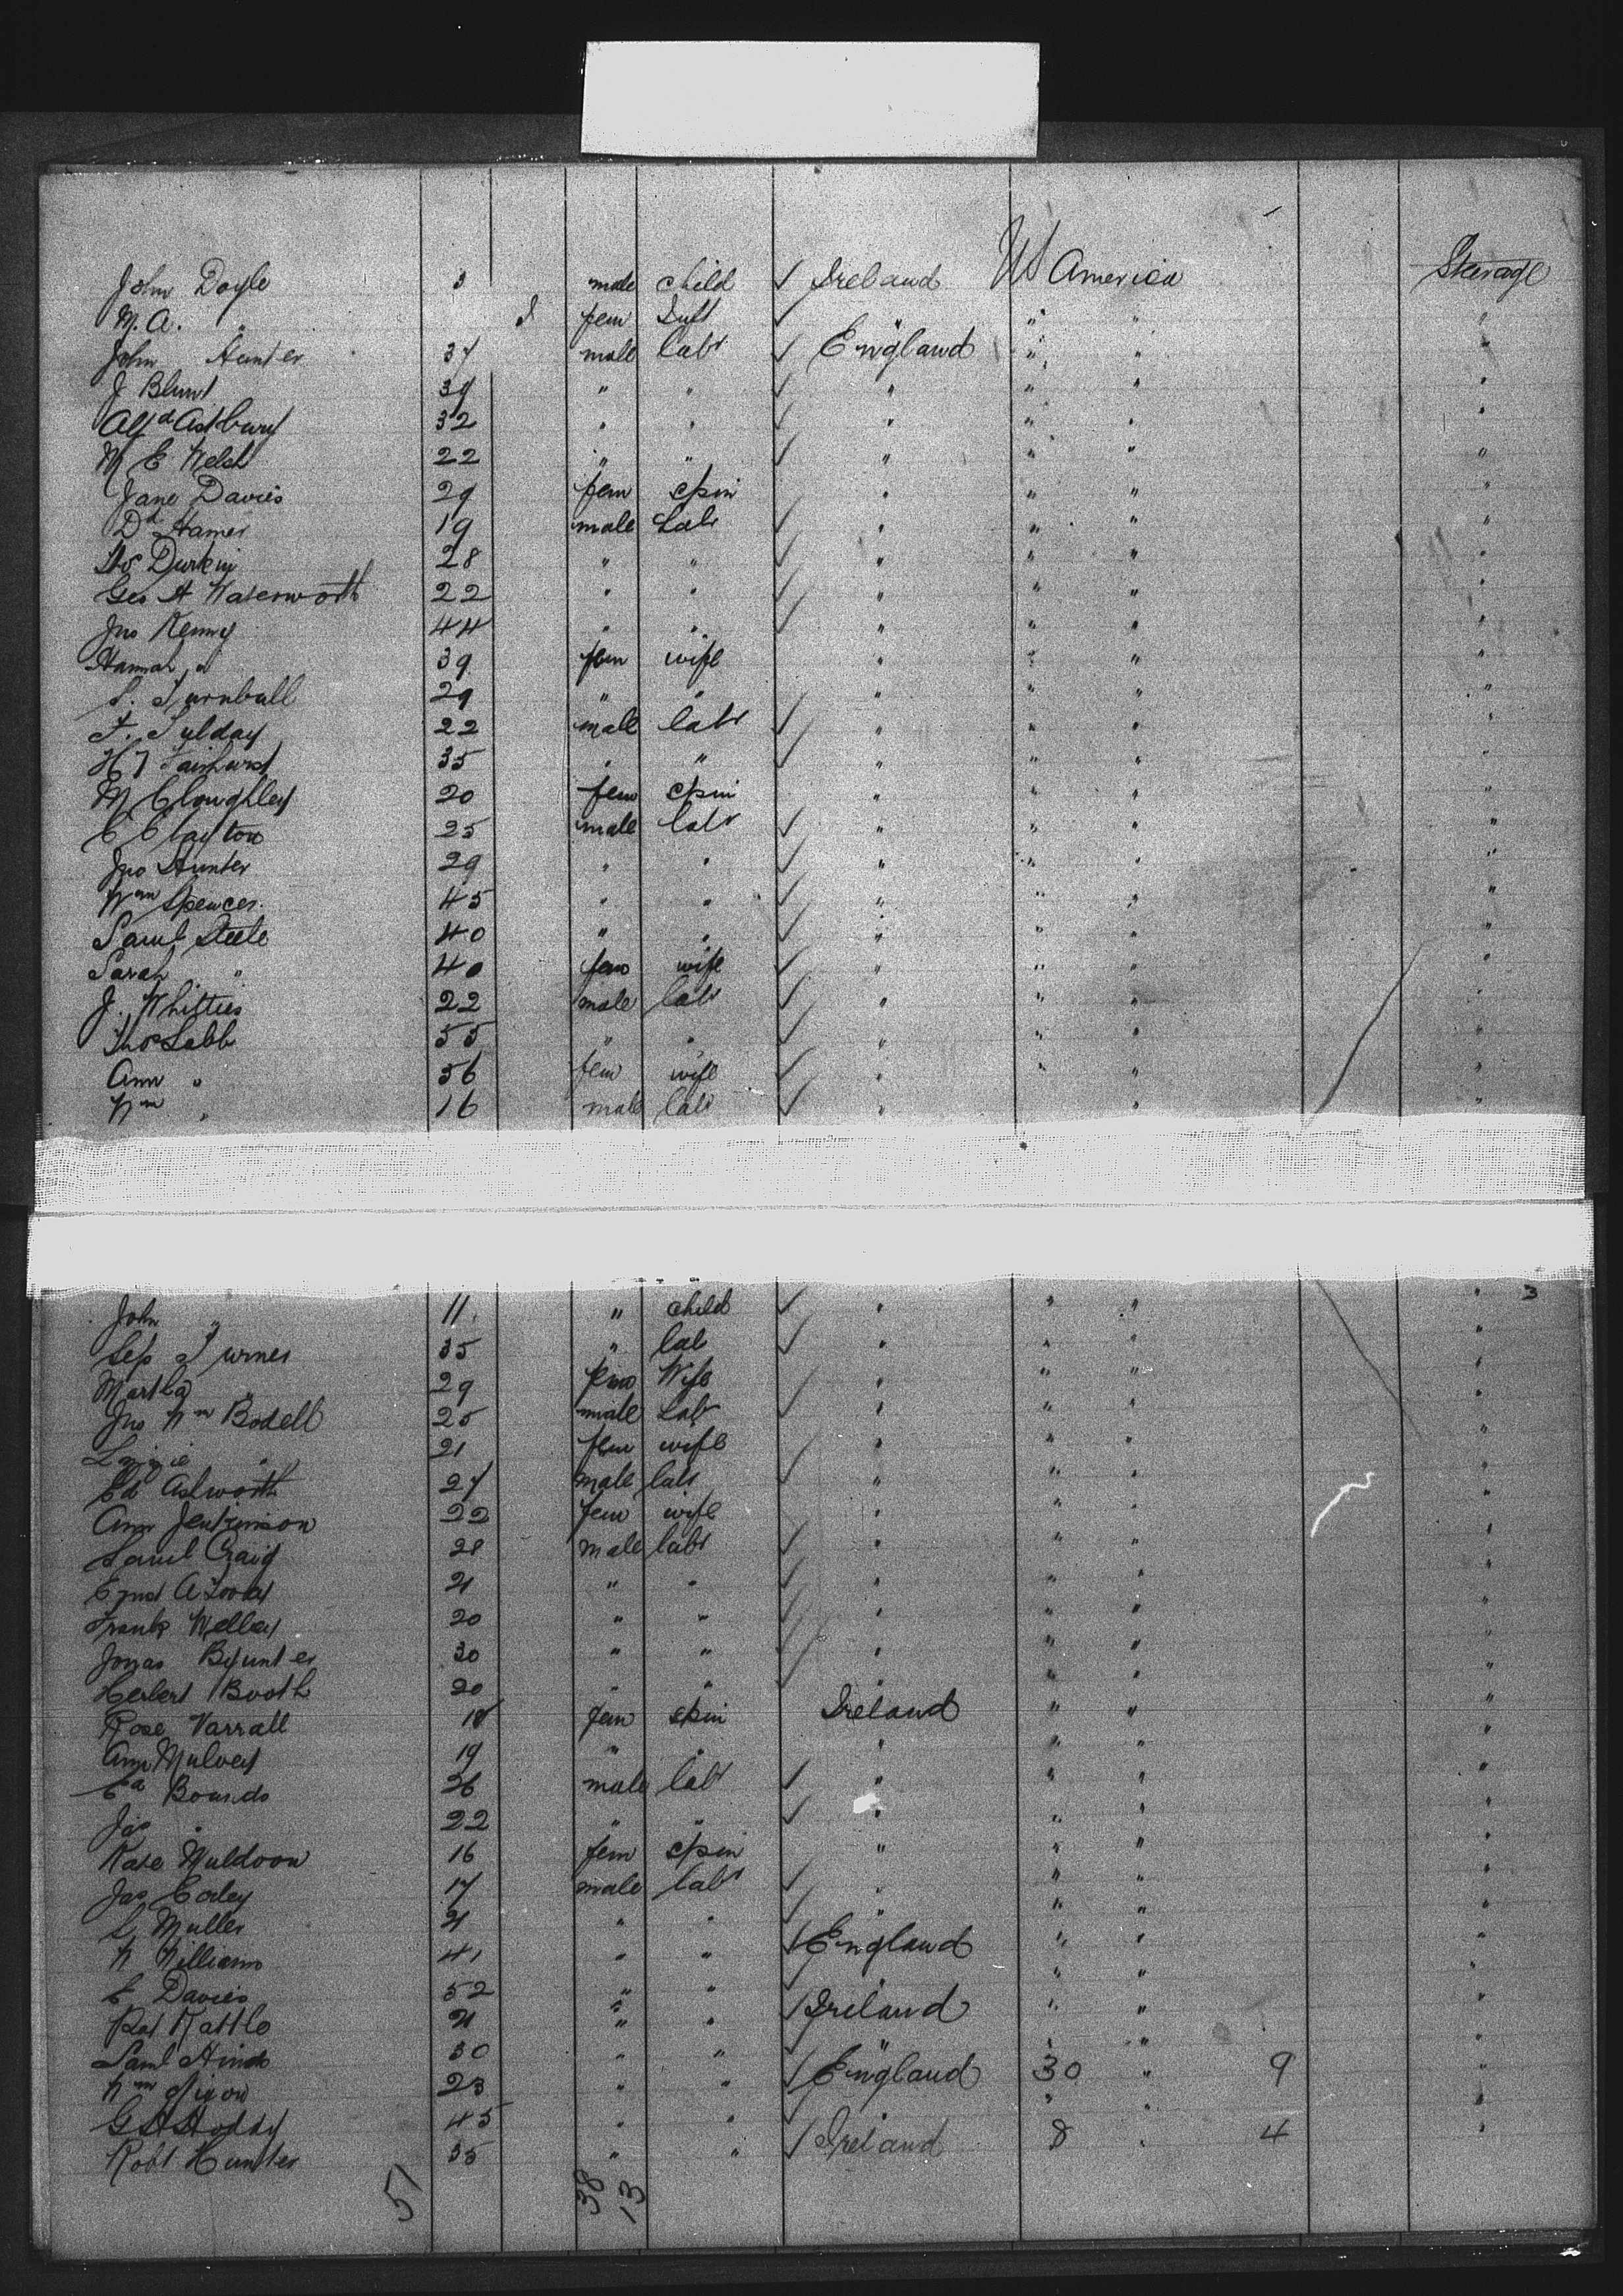 John Doyle 3 male child ✓ Ireland US America Steerage
M. A. " fem Inft ✓ " " " "
John Hunter 37 male labr ✓ England " " "
J Blunt 39 " " ✓ " " " "
Alfd Astbury 32 " " ✓ " " " "
M E Welsh 22 " " ✓ " " " "
Jane Davies 29 fem spin " " " "
Dd Hamer 19 male Labr ✓ " " " "
Thos Durkin 28 " " ✓ " " " "
Geo H Waterworth 22 " " ✓ " " " "
Jno Kenny 44 " " ✓ " " " "
Hannah " 39 fem wife " " " "
S. Turnbull 29 " " ✓ " " " "
22 male labr ✓ " " " "
H J Fairhurst 35 " " ✓ " " " "
M Cloughley 20 fem spin " " " "
C Clayton 25 male labr ✓ " " " "
Jno Hunter 29 " " ✓ " " " "
Wm Spencer 45 " " ✓ " " " "
Saml Steele 40 " " ✓ " " " "
Sarah " 40 fem wife ✓ " " " "
J. 22 male labr ✓ " " " "
Thos Labb 55 " " ✓ " " " "
Ann " 56 fem wife ✓ " " " "
Wm " 16 male labr ✓ " " "
John " 11 " child ✓ " " " " 3
Sep Turner 35 " lab ✓ " " " "
Martha " 29 fem Wife " " " "
Jno Wm Bodell 25 male Labr ✓ " " " "
Lizzie " 21 fem wife " " " "
Ed Ashworth 27 male labr ✓ " " " "
Ann Jenkinson 22 fem wife " " " "
Saml Craig 28 male labr ✓ " " " "
21 " " ✓ " " " "
Frank 20 " " ✓ " " " "
Jonas 30 " " ✓ " " " "
Herbert Booth 20 " " " " " "
Rose Varrall 18 fem spin Ireland " " "
Ann Mulvey 19 " " " " " "
Ed Bounds 26 male labr ✓ " " " "
Jas " 22 " " ✓ " " " "
Kate Muldoon 16 fem spin " " " "
Jas Corley 17 male labr ✓ " " " "
L Muller 21 " " ✓ " " " "
W Williams 41 " " ✓ England " " "
E Davies 52 " " " " " "
Pat Rattle 21 " " ✓ Ireland " " "
Saml Hinds 30 " " " " " "
Wm Nixon 23 " " ✓ England 30 " 9 "
G H Hoddy 45 " " ✓ " " "
Robt Hunter 35 " " ✓ Ireland 8 " 4 "
51 38 13